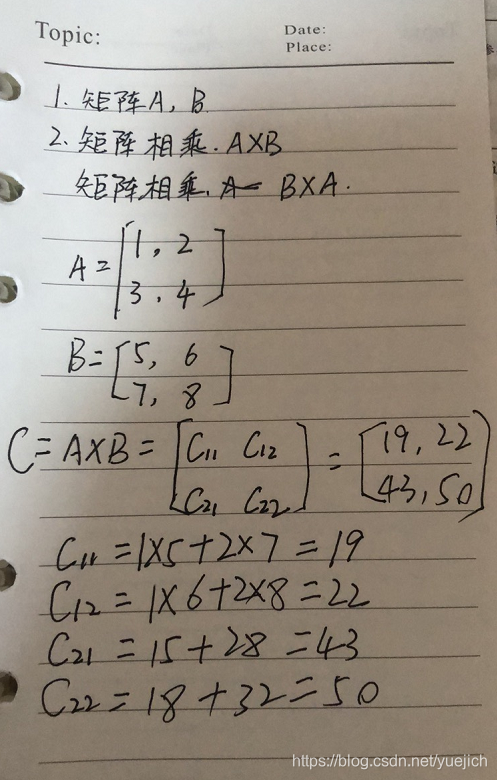 Topic:
Date:
Place:
1. 矩阵A, B
2. 矩阵相乘. A×B
矩阵相乘. A B×A.
A = [1, 2
3, 4]
B = [5, 6
7, 8]
C = A×B = [C11 C12
C21 C22] = [19, 22
43, 50]
C11 = 1×5+2×7 = 19
C12 = 1×6+2×8 = 22
C21 = 15+28 = 43
C22 = 18+32 = 50
https://blog.csdn.net/yuejich